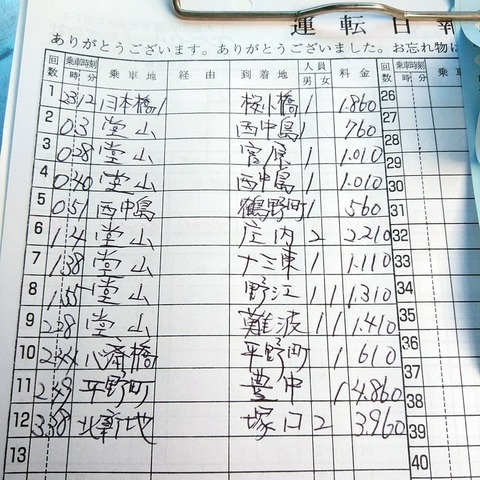 運転日報
ありがとうございます。ありがとうございました。お忘れ物は
回数 乗車時刻 時 分 乗車地 経由 到着地 人員 男 女 料金 回数 乗車時刻 時 分 乗車
1 23 12 日本橋 1 桜小橋 1 1.860 26
2 0 3 堂山 西中島 1 760 27
3 0 28 堂山 菅原 1 1.010 28
4 0 40 堂山 西中島 1 1.010 29
5 0 51 西中島 鶴野町 1 560 31
6 1 4 堂山 庄内 2 2.210 32
7 1 38 堂山 十三東 1 1.110 33
8 1 55 堂山 野江 1 1 1.310 34
9 2 28 堂山 難波 1 1 1.410 35
10 2 44 心斎橋 平野町 1 610 36
11 2 49 平野町 豊中 1 4.860 37
12 3 38 北新地 塚口 2 3.960 38
13 39
40